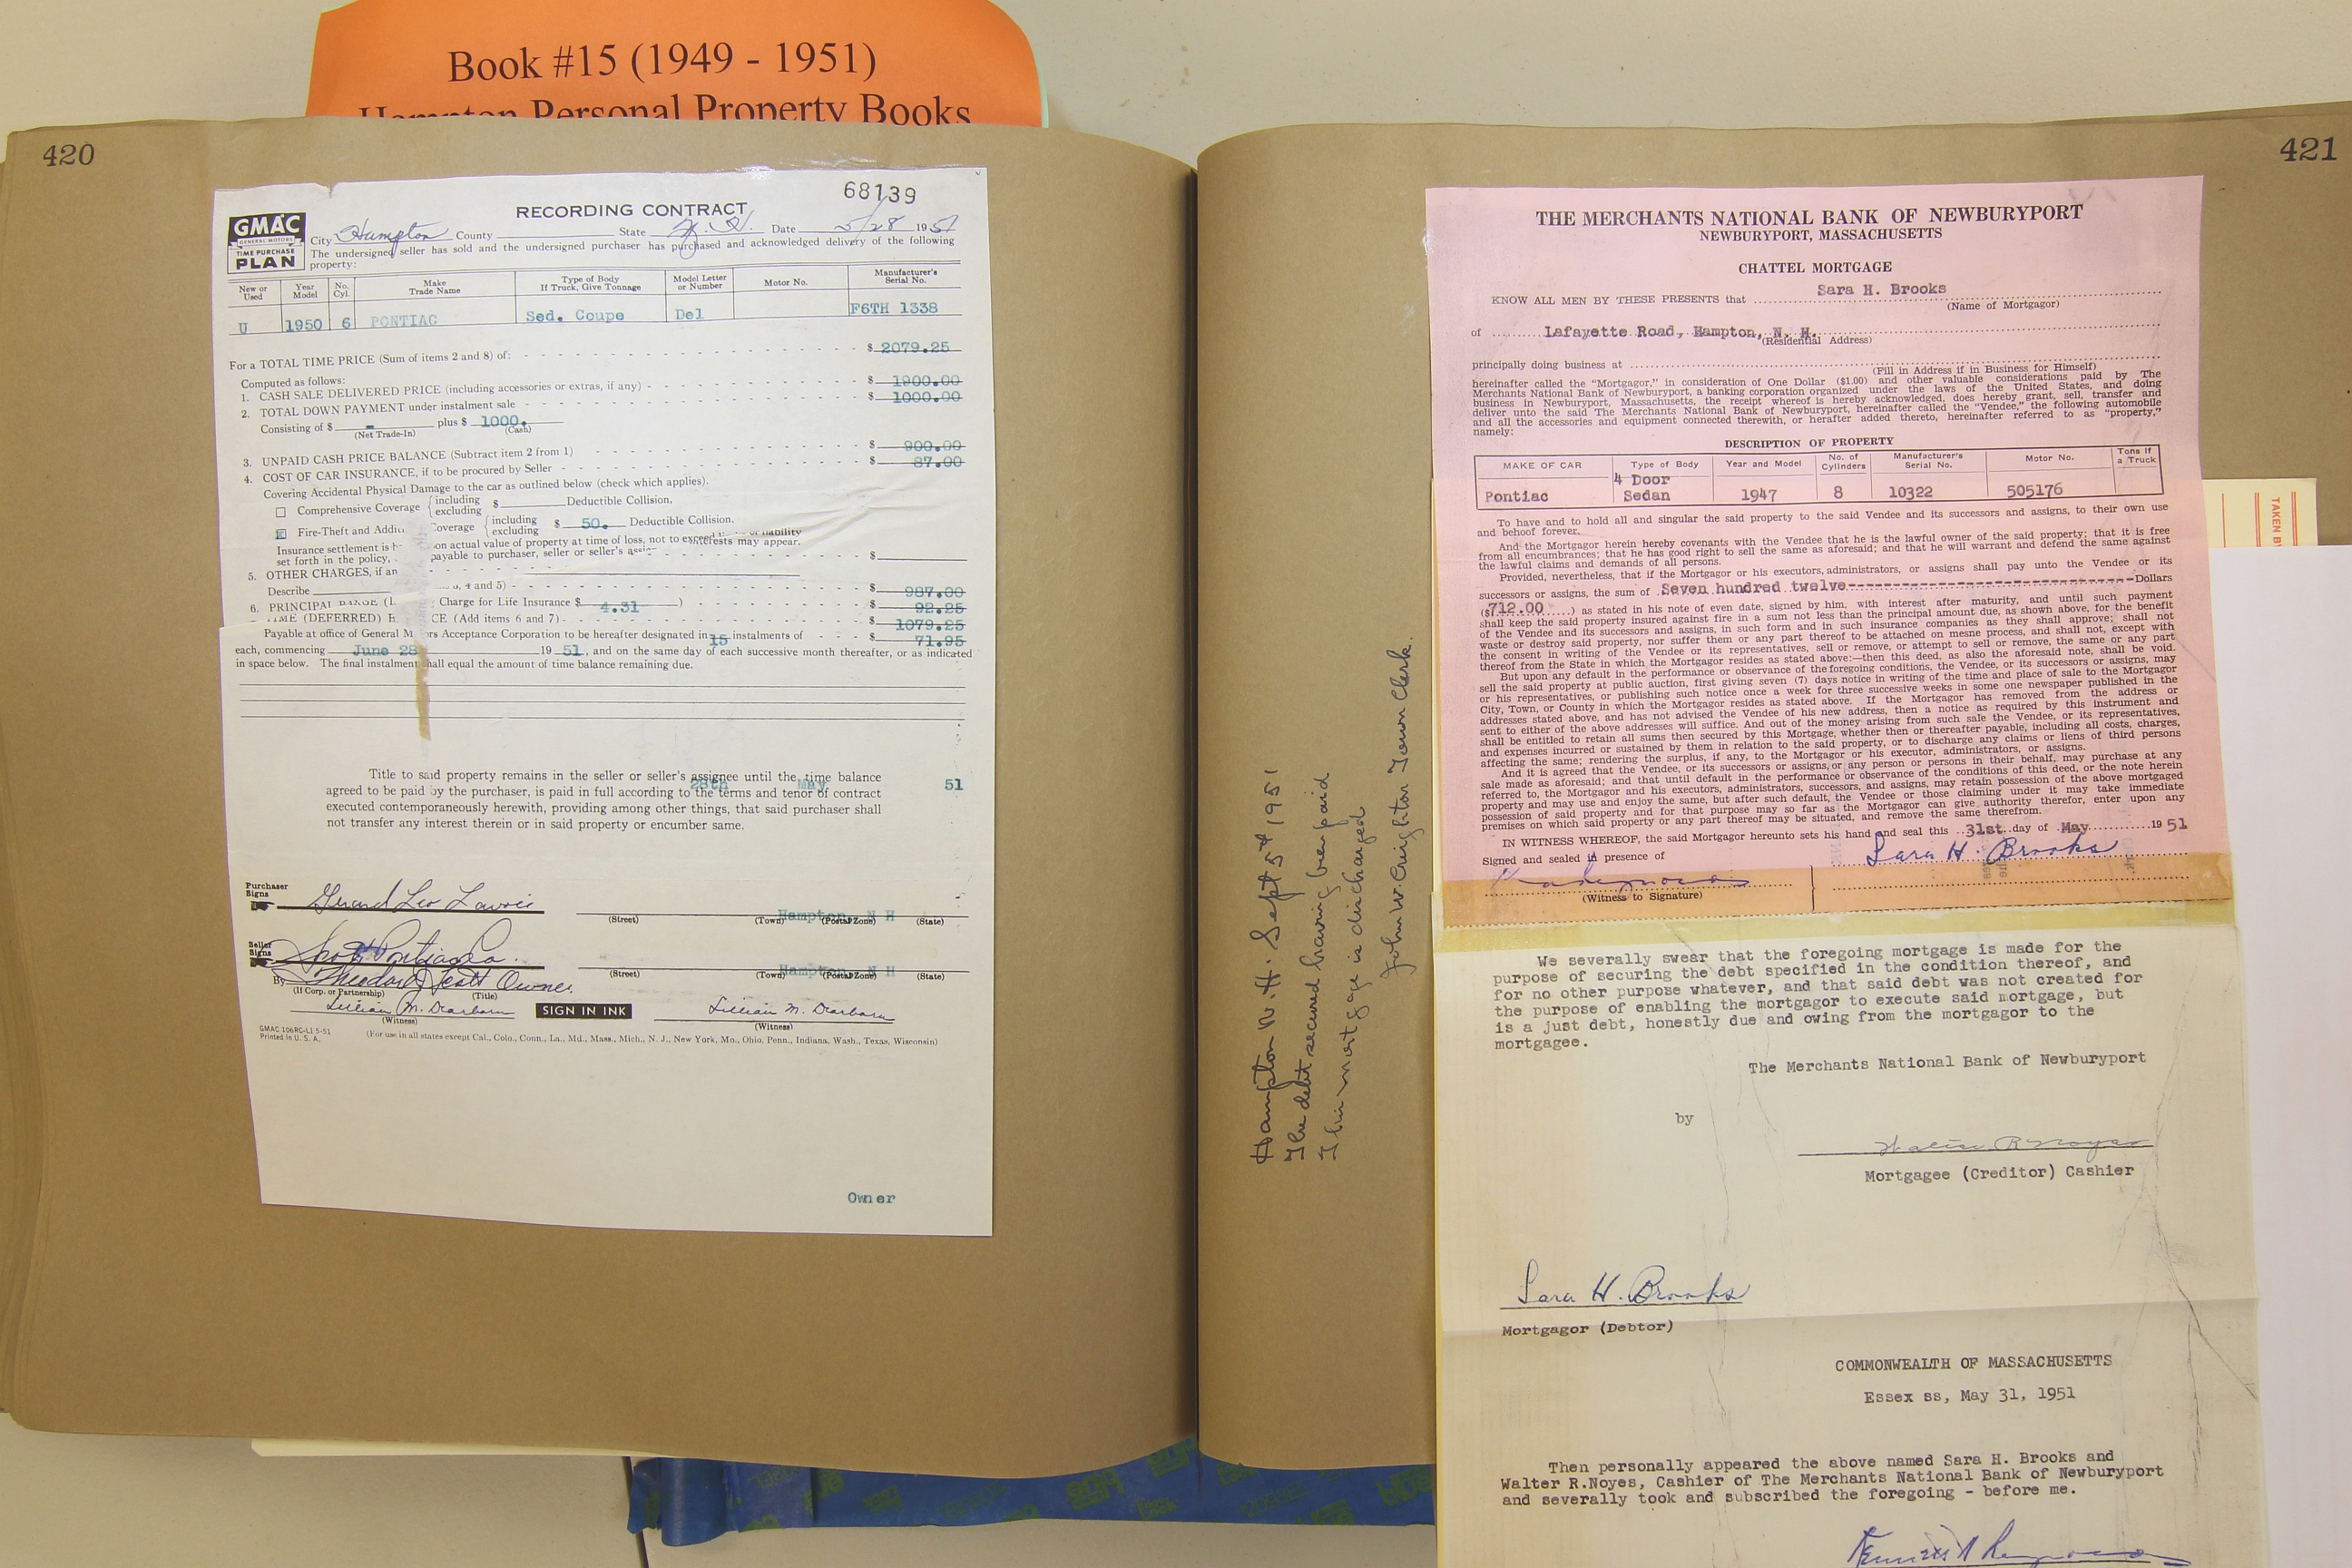 Book #15 (1949 - 1951)
Hampton Personal Property Books
420
68139
RECORDING CONTRACT
GMAC
GENERAL MOTORS
TIME PURCHASE
PLAN
City Hampton County State N. H. Date 5/28 1951
The undersigned seller has sold and the undersigned purchaser has purchased and acknowledged delivery of the following
property:
New or Used Year Model No. Cyl. Make Trade Name Type of Body If Truck, Give Tonnage Model Letter or Number Motor No. Manufacturer's Serial No.
U 1950 6 PONTIAC Sed. Coupe Del F6TH 1338
For a TOTAL TIME PRICE (Sum of items 2 and 8) of: $ 2079.25
Computed as follows:
1. CASH SALE DELIVERED PRICE (including accessories or extras, if any) - $ 1900.00
2. TOTAL DOWN PAYMENT under instalment sale $ 1000.00
Consisting of $ - plus $ 1000.
(Net Trade-In) (Cash)
3. UNPAID CASH PRICE BALANCE (Subtract item 2 from 1) $ 900.00
4. COST OF CAR INSURANCE, if to be procured by Seller $ 87.00
Covering Accidental Physical Damage to the car as outlined below (check which applies).
Comprehensive Coverage {including excluding $ Deductible Collision.
Fire-Theft and Additi overage {including excluding $ 50. Deductible Collision.
Insurance settlement is b on actual value of property at time of loss, not to exceed
set forth in the policy, payable to purchaser, seller or seller's interests may appear.
5. OTHER CHARGES, if an $
Describe , 4 and 5) - $ 987.00
6. PRINCIPAL Charge for Life Insurance $ 4.31 ) $ 92.25
TIME (DEFERRED) CE (Add items 6 and 7) - $ 1079.25
Payable at office of General M rs Acceptance Corporation to be hereafter designated in 15 instalments of $ 71.95
each, commencing June 28 19 51, and on the same day of each successive month thereafter, or as indicated
in space below. The final instalment shall equal the amount of time balance remaining due.
Title to said property remains in the seller or seller's assignee until the time balance
28th May 51
agreed to be paid by the purchaser, is paid in full according to the terms and tenor of contract
executed contemporaneously herewith, providing among other things, that said purchaser shall
not transfer any interest therein or in said property or encumber same.
Purchaser Signs Gerard Leo Lavoie Hampton, N H
(Street) (Town) (Postal Zone) (State)
Seller Signs Scott Pontiac Co. Hampton, N H
(Street) (Town) (Postal Zone) (State)
By Theodore J Scott Owner
(If Corp. or Partnership) (Title)
Lillian M. Dearborn SIGN IN INK Lillian M. Dearborn
(Witness) (Witness)
GMAC 106RC-L1 5-51
Printed in U. S. A.
(For use in all states except Cal., Colo., Conn., La., Md., Mass., Mich., N. J., New York, Mo., Ohio, Penn., Indiana, Wash., Texas, Wisconsin)
Owner
421
Hampton N. H. Sept 5th 1951
The debt secured having been paid
This mortgage is discharged
John W. Creighton Town Clerk.
THE MERCHANTS NATIONAL BANK OF NEWBURYPORT
NEWBURYPORT, MASSACHUSETTS
CHATTEL MORTGAGE
KNOW ALL MEN BY THESE PRESENTS that Sara H. Brooks
(Name of Mortgagor)
of Lafayette Road, Hampton, N. H.
(Residential Address)
principally doing business at
(Fill in Address if in Business for Himself)
hereinafter called the "Mortgagor," in consideration of One Dollar ($1.00) and other valuable considerations paid by The
Merchants National Bank of Newburyport, a banking corporation organized under the laws of the United States, and doing
business in Newburyport, Massachusetts, the receipt whereof is hereby acknowledged, does hereby grant, sell, transfer and
deliver unto the said The Merchants National Bank of Newburyport, hereinafter called the "Vendee," the following automobile
and all the accessories and equipment connected therewith, or herafter added thereto, hereinafter referred to as "property,"
namely:
DESCRIPTION OF PROPERTY
MAKE OF CAR Type of Body Year and Model No. of Cylinders Manufacturer's Serial No. Motor No. Tons if a Truck
Pontiac 4 Door Sedan 1947 8 10322 505176
To have and to hold all and singular the said property to the said Vendee and its successors and assigns, to their own use
and behoof forever.
And the Mortgagor herein hereby covenants with the Vendee that he is the lawful owner of the said property; that it is free
from all encumbrances; that he has good right to sell the same as aforesaid; and that he will warrant and defend the same against
the lawful claims and demands of all persons.
Provided, nevertheless, that if the Mortgagor or his executors, administrators, or assigns shall pay unto the Vendee or its
successors or assigns, the sum of Seven hundred twelve------------------------------Dollars
($712.00) as stated in his note of even date, signed by him, with interest after maturity, and until such payment
shall keep the said property insured against fire in a sum not less than the principal amount due, as shown above, for the benefit
of the Vendee and its successors and assigns, in such form and in such insurance companies as they shall approve; shall not
waste or destroy said property, nor suffer them or any part thereof to be attached on mesne process, and shall not, except with
the consent in writing of the Vendee or its representatives, sell or remove, or attempt to sell or remove, the same or any part
thereof from the State in which the Mortgagor resides as stated above:—then this deed, as also the aforesaid note, shall be void.
But upon any default in the performance or observance of the foregoing conditions, the Vendee, or its successors or assigns, may
sell the said property at public auction, first giving seven (7) days notice in writing of the time and place of sale to the Mortgagor
or his representatives, or publishing such notice once a week for three successive weeks in some one newspaper published in the
City, Town, or County in which the Mortgagor resides as stated above. If the Mortgagor has removed from the address or
addresses stated above, and has not advised the Vendee of his new address, then a notice as required by this instrument and
sent to either of the above addresses will suffice. And out of the money arising from such sale the Vendee, or its representatives,
shall be entitled to retain all sums then secured by this Mortgage, whether then or thereafter payable, including all costs, charges,
and expenses incurred or sustained by them in relation to the said property, or to discharge any claims or liens of third persons
affecting the same; rendering the surplus, if any, to the Mortgagor or his executor, administrators, or assigns.
And it is agreed that the Vendee, or its successors or assigns, or any person or persons in their behalf, may purchase at any
sale made as aforesaid; and that until default in the performance or observance of the conditions of this deed, or the note herein
referred to, the Mortgagor and his executors, administrators, successors, and assigns, may retain possession of the above mortgaged
property and may use and enjoy the same, but after such default, the Vendee or those claiming under it may take immediate
possession of said property and for that purpose may so far as the Mortgagor can give authority therefor, enter upon any
premises on which said property or any part thereof may be situated, and remove the same therefrom.
IN WITNESS WHEREOF, the said Mortgagor hereunto sets his hand and seal this 31st day of May 19 51
Signed and sealed in presence of Sara H. Brooks
(Witness to Signature)
We severally swear that the foregoing mortgage is made for the
purpose of securing the debt specified in the condition thereof, and
for no other purpose whatever, and that said debt was not created for
the purpose of enabling the mortgagor to execute said mortgage, but
is a just debt, honestly due and owing from the mortgagor to the
mortgagee.
The Merchants National Bank of Newburyport
by
Walter R Noyes
Mortgagee (Creditor) Cashier
Sara H. Brooks
Mortgagor (Debtor)
COMMONWEALTH OF MASSACHUSETTS
Essex ss, May 31, 1951
Then personally appeared the above named Sara H. Brooks and
Walter R.Noyes, Cashier of The Merchants National Bank of Newburyport
and severally took and subscribed the foregoing - before me.
TAKEN BY